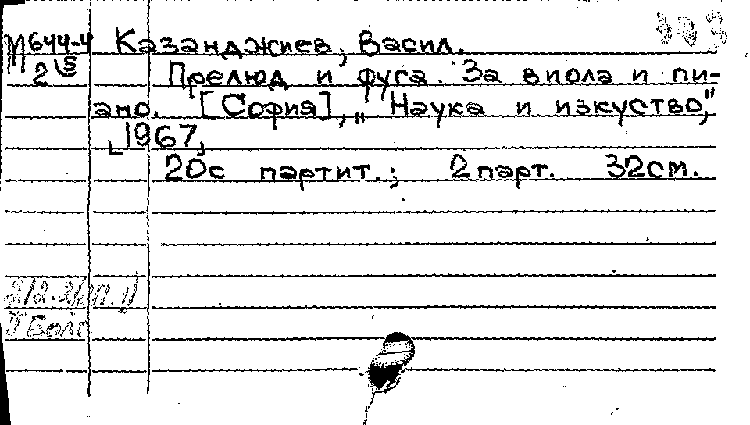 М 644-4 Казанджиев, Васил.
2
Прелюд и фуга. За виола и пи-
ано. [София], „Наука и изкуство,"
1967,
20с партит.; 2 парт. 32см.